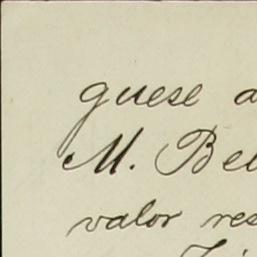 guese a
M. Bel
valor res